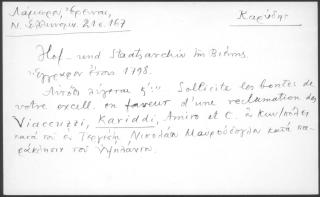 Λάμπρου, Σπυρίδ.
Ν. Ἑλληνομν. 21 σ. 167
Καρύδης
Hof - und Staatsarchiv in Biéns.
Ἔγγραφον ἔτους 1798.
Αὐτόθι λέγεται ὅτι Sollicite les bontés de
votre excell. en faveur d'une reclamation des
Viaccuzzi, Kariddi, Amiro et C. ἐν Κων/πόλει
κατὰ τοῦ ἐν Τεργέστῃ Νικολάου Μαυροδόγλου κατὰ πα-
ράκλησιν τοῦ Ὑψηλάντου.